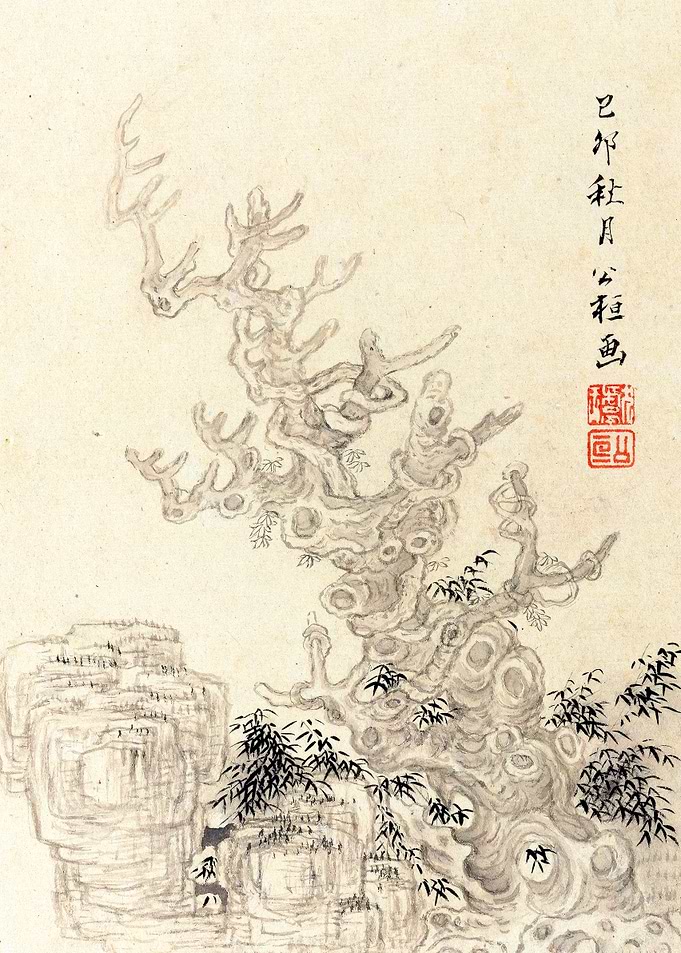 己卯秋月公桓画